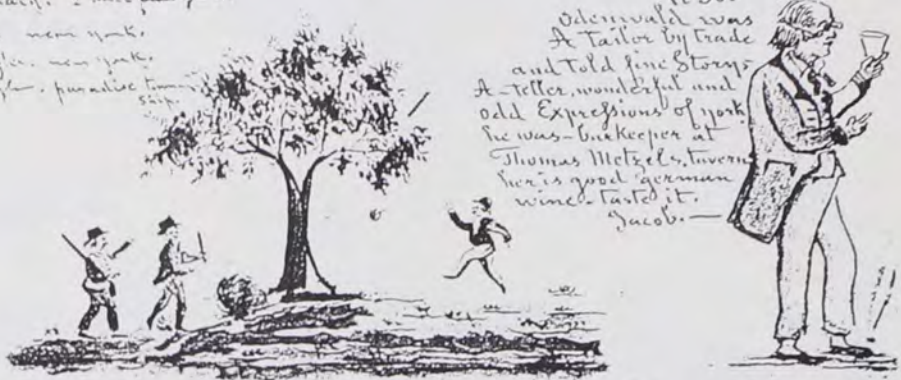 near york.
near york.
paradise town
ship.
Odenwald was
A Tailor by trade
and Told fine Storys
A-teller, wonderful and
odd Expressions of york
he was-barkeeper at
Thomas Metzels, tavern
her is good german
wine-taste it.
Jacob.—